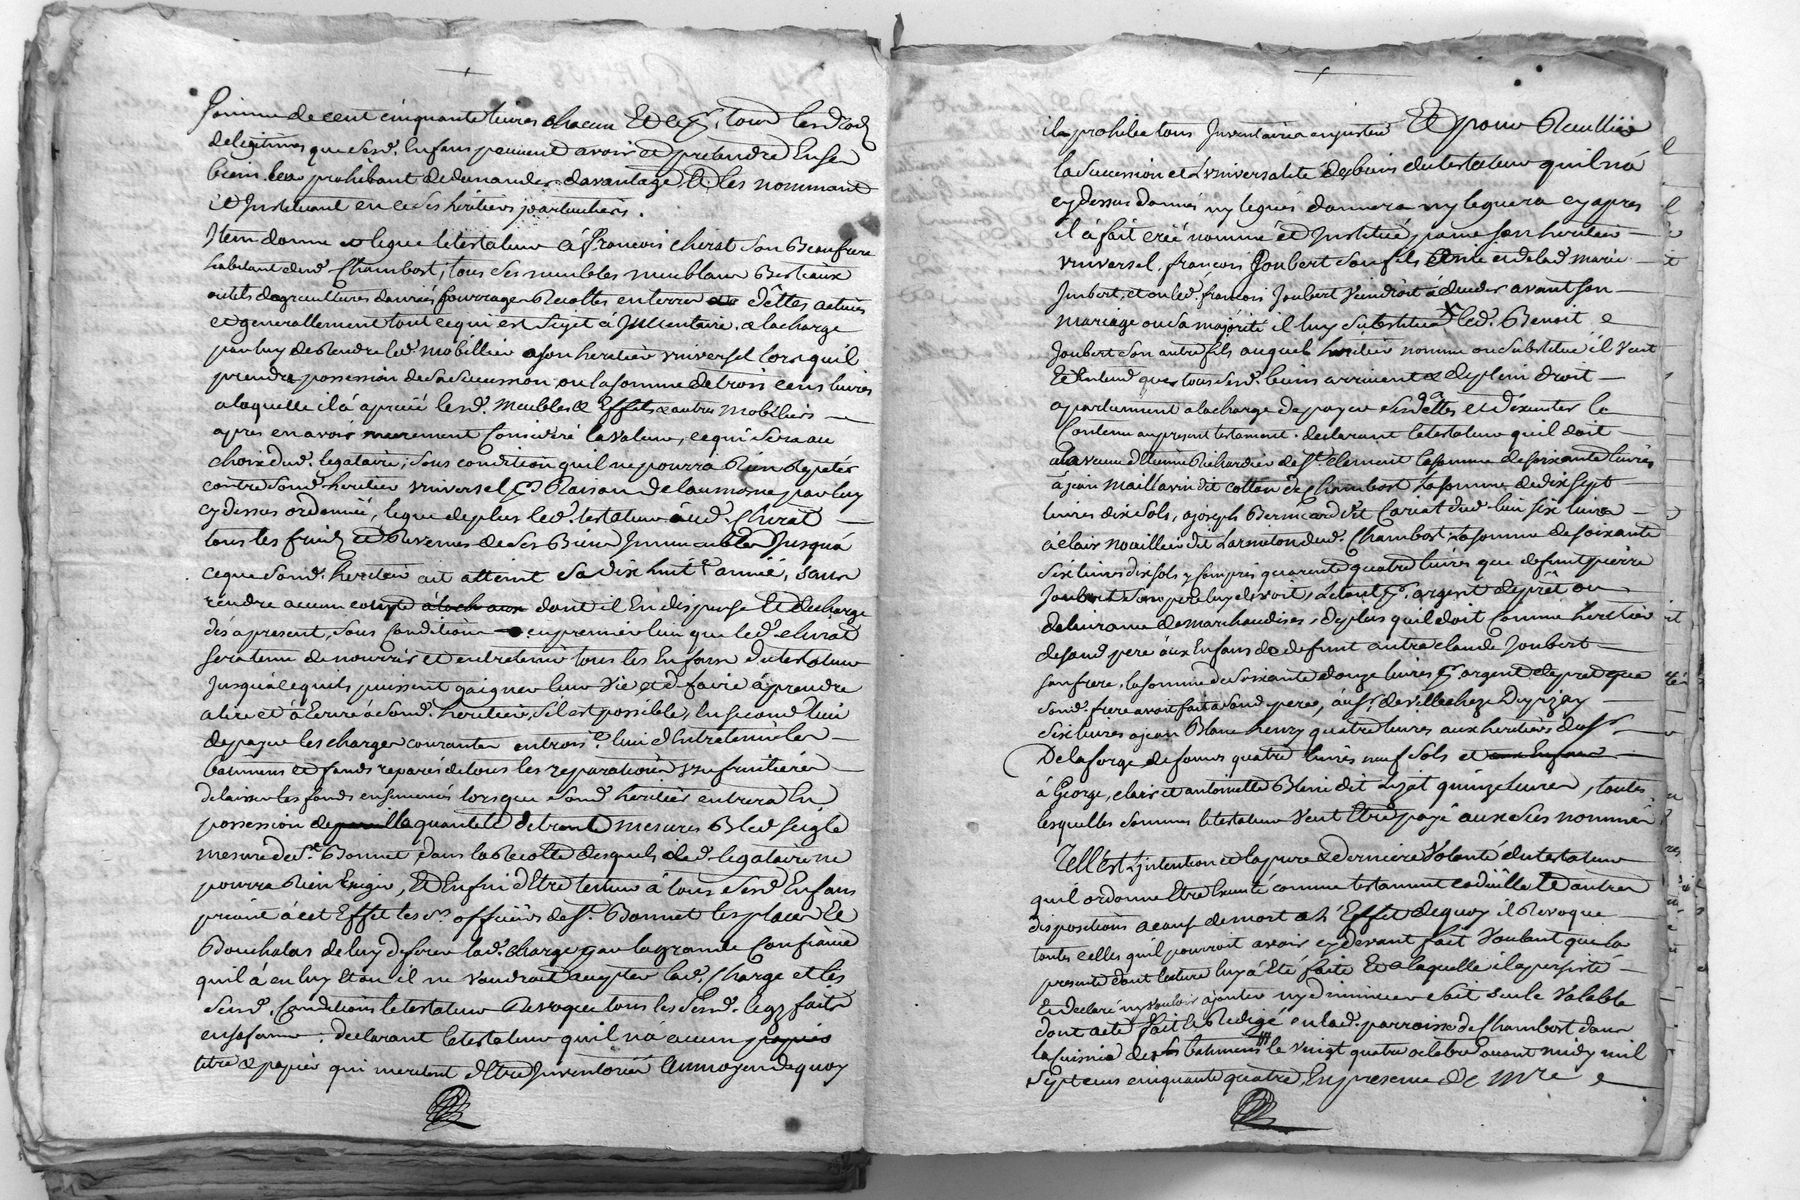 somme de cent cinquante livres chacun Et ce p. tous les droits
de legitimes que sesd. Enfans peuvent avoir et pretendre En ses
biens les prohibant de demander davantage Et les nommant
et Instituant en ce ses heritiers particuliers.
Item donne et legue le testateur à françois chirat son Beaufrere
habitant dud. Chambost, tous ses meubles meublans Bestiaux
outils dagricultures danrées fourrages Recoltes en terre dettes actives
et generallement tout ce qui est sujet à Inventaire. a la charge
par luy de Rendre led. mobillier a son heritier vniversel lorsquil
prendra possession de sa sucession, ou la somme de trois cens livres
a laquelle il à aprecié lesd. Meubles & Effets & autres mobiliers
apres en avoir murement Consideré la valeur, ce qui sera au
choix dud. legataire; sous condition quil ne pourra Rien Repeter
contre sond. heritier vniversel p. Raison de laumosne par luy
cy dessus ordonnée, legue de plus led. testateur aud. Chirat
tous les fruits et Revenus de ses Biens Immeubles Jusquà
ce que sond. heritier ait atteint sa dix huit e année, sans
rendre aucun compte dont il En dispense Et decharge
dés a present, sous Condition en premier lieu que led. chirat
sera tenu de nourrir et entretenir tous les Enfans du testateur
Jusqua ce quils puissent gaigner leur vie et de faire àprendre
a lire et à Ecrire à sond. heritier, s'il est possible, En second lieu
de payer les charges courantes en trois.e lieu d'Entretenir les
bâtimens et fonds reparés de tous les reparations vsufruitieres
de laisser les fonds ensemencés lorsque sond. heritier entrera En
possession de quantité de trente mesures Bled seigle
mesure de St. Bonnet, dans la Recolte desquels led. legataire ne
pourra Rien Exiger, Et Enfin d'Etre tuteur à tous sesd. Enfans
priant à cet Effet les Srs. officiers de St. Bonnet les places Et
Bouchalas de luy deferer lad. charge par la grande Confiance
quil à en luy Et ou il ne voudroit accepter lad. Charge et les
susd. Conditions le testateur Revoque tous les susd. legs faits
en sa faveur. declarant le testateur quil n'à aucun
titre & papier qui meritent d'Etre Inventoriés Au moyen de quoy
il a prohibé tous Inventaires en justice Et pour Recueillir
la Sucession et L'vniversalité des biens du testateur qu'il n'à
cy dessus donnés ny legués donnera ny leguera cy apres
il à fait créé nommé et Institué pour son heritier
vniversel, françois Joubert son fils et de lad. marie
Imbert, et ou led. françois Joubert viendroit à deceder avant son
mariage ou sa majorité il luy substitue led. Benoit
Joubert son autre fils auquel heritier nommé ou substitué il veut
Et Entend que tous sesd. biens arrivent & de plein droit
apartiennent a la charge de payer ses dettes et d'éxecuter le
Contenu au present testament. declarant le testateur quil doit
a la veuve d'Etienne Richardier de St. Clement la somme de soixante livres
à jean Maillavin dit cottan de Chambost la somme de dix sept
livres dix sols, a joseph Bernicard dit Cariat dud. lieu six livres
à clair novaillier dit Larmeton dud. Chambost, la somme de soixante
six livres dix sols y compris quarente quatre livres que defunt pierre
Joubert son pere luy devoit, le tout p. argent de prêt ou
delivrance de marchandises, de plus quil doit comme heritier
de sond. pere aux Enfans de defunt autre claude Joubert
son frere, la somme de soixante douze livres p. argent de pret que
sond. frere avoit fait a sond. pere, au Sr. de villechez Dupizay
six livres a jean Blanc henry quatre livres aux heritiers du Sr.
Delaforge de somme quatre livres neuf sols et
à George, clair et antoinette Blein dit Lizat quinze livres, toutes
lesquelles sommes le testateur veut Etre payé aux susnommés
Tell'Est L'intention et la pure & derniere volonté du testateur
qu'il ordonne Etre Executé comme testament codicille Et autres
dispositions a cause de mort a l'Effet de quoy il Revoque
toutes celles qu'il pourroit avoir cy devant fait voulant que la
presente dont lecture luy à Eté faite Et a laquelle il a persisté
Et declaré ny vouloir ajouter ny diminuer soit seule valable
dont acte fait et Redigé en lad. parroisse de Chambost dans
la cuisine de ses batimens le vingt quatre octobre avant midy mil
sept cens cinquante quatre, En presence de Mre